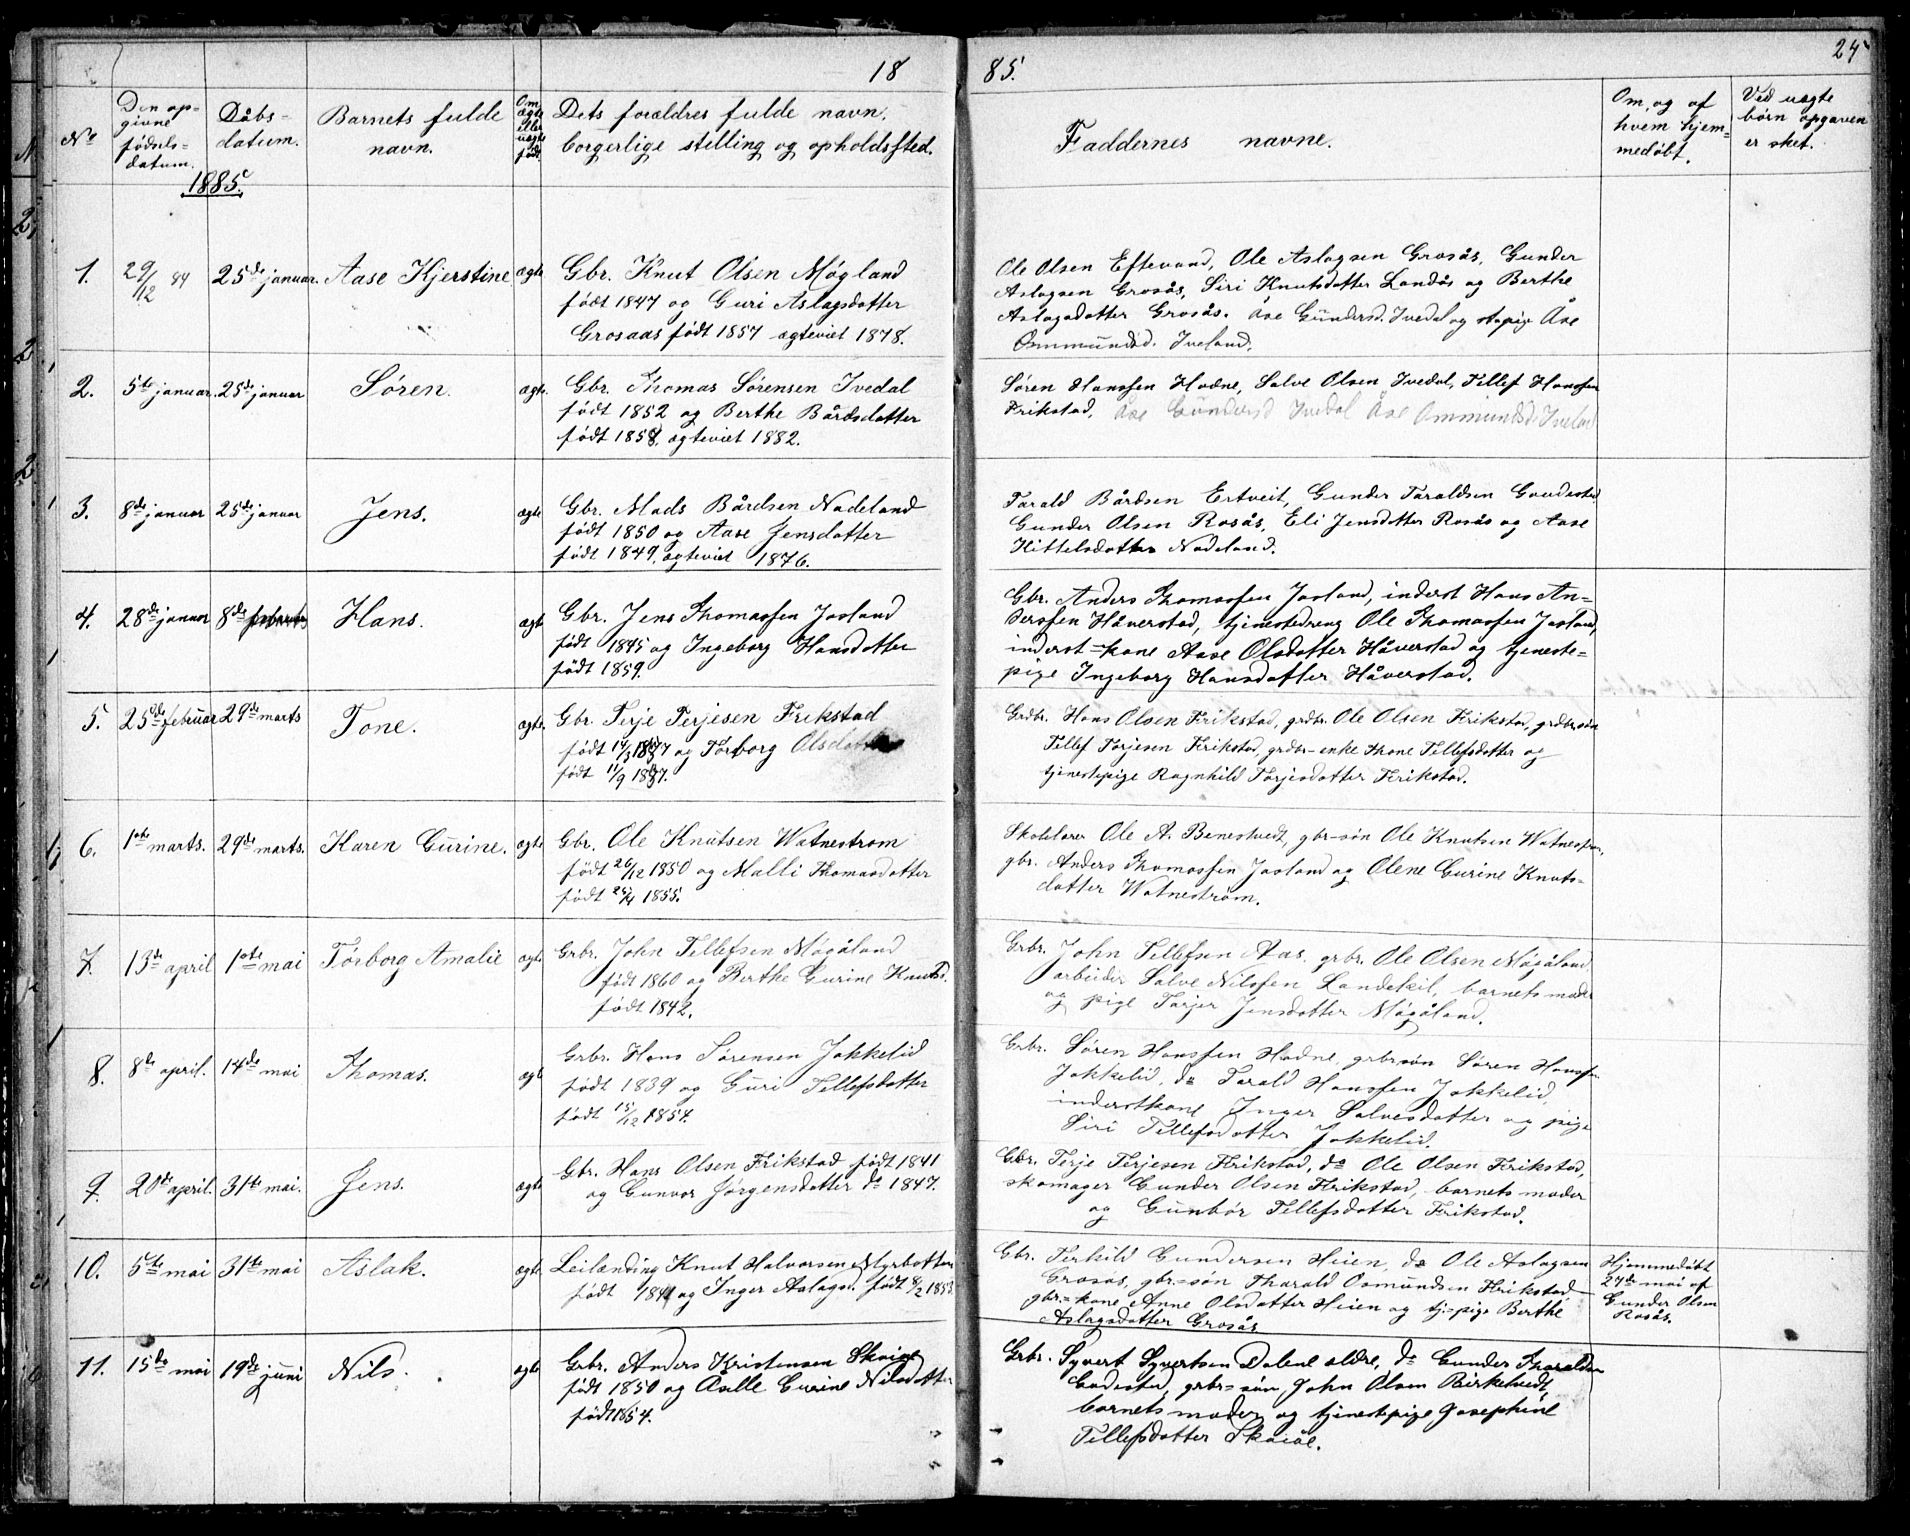 18 85. 24
No
Den op-
givne
fødsels-
datum.
Dåbs-
datum.
Barnets fulde
navn.
Om
ægte
eller
uægte
født.
Dets forældres fulde navn,
borgerlige stilling og opholdssted.
Faddernes navne.
Om, og af
hvem hjem-
medøbt.
Ved uægte
børn opgaven
er sket.
1885.
1. 29/12 84 25de januar. Aase Kjerstine ægte Gbr. Knut Olsen Møgland
født 1847 og Guri Aslagsdotter
Grosaas født 1857 ægteviet 1878.
Ole Olsen Eftevand, Ole Aslagsen Grosås, Gunder
Aslagsen Grosås, Siri Knutsdotter Landås og Berthe
Aslagsdotter Grosås. Åse Gundersd. Ivedal og Åse
Ommundsd. Iveland.
2. 5te januar. 25de januar Søren. ægte. Gbr. Thomas Sørensen Ivedal
født 1852 og Berthe Bårdsdotter
født 1858, ægteviet 1882.
Søren Hanssen Hodne, Salve Olsen Ivedal, Tellef Hanssen
Frikstad, Åse Gundersd Ivedal Åse Ommundsd. Iveland
3. 8de januar 25de januar Jens. ægte Gbr. Mads Bårdsen Nadeland
født 1850 og Aase Jensdotter
født 1849, ægteviet 1876.
Tarald Bårdsen Ertveit, Gunder Taraldsen Gaudestad
Gunder Olsen Rosås, Eli Jensdotter Rosås og Aase
Kittelsdotter Nadeland.
4. 28de januar 8de februar Hans. ægte Gbr. Jens Thomassen Jasland
født 1845 og Ingeborg Hansdotter
født 1859.
Gbr. Anders Thomassen Jasland, inderst Hans An-
derssen Håverstad, tjenestedreng Ole Thomassen Jasland,
inderst-kone Aase Olsdotter Håverstad og tjeneste-
pige Ingeborg Hansdotter Håverstad.
5. 25de februar 29de marts Tone. ægte. Gbr. Terje Terjesen Frikstad
født og Torborg Olsdotter
født
Grdbr. Hans Olsen Frikstad, grdbr. Ole Olsen Frikstad, grdbr.søn
Tellef Terjesen Frikstad, grdbr-enke Thone Tellefsdotter og
tjenestepige Ragnhild Tarjesdotter Frikstad.
6. 1ste marts. 29de marts. Karen Gurine. ægte Gbr. Ole Knutsen Watnestrøm
født 26/12 1850 og Malli Thomasdotter
født 25/4 1855.
Skolelærer Ole A. Benestvedt, gbr-søn Ole Knutsen Watnestrøm,
gbr. Anders Thomassen Jasland og Olene Gurine Knuts-
dotter Watnestrøm.
7. 13de april 1ste mai Tørborg Amalie ægte. Grbr. John Tellefsen Møgåland
født 1860 og Berthe Gurine Knutsd.
født 1842.
Grbr. John Tellefsen Aas, grbr. Ole Olsen Møgåland
arbeider Salve Nilssen Landekil, barnets moder
og pige Tarjer Jensdotter Møgåland.
8. 8de april. 14de mai Thomas. ægte Grbr. Hans Sørensen Jokkelid
født 1839 og Guri Tellefsdotter
født 15/12 1854.
Grbr. Søren Hanssen Hodne, grbrsøn Søren Hanssen
Jokkelid, do Tarald Hanssen Jokkelid,
inderstkone Inger Salvesdotter og pige
Siri Tellefsdotter Jokkelid.
9. 20de april. 31te mai. Jens. ægte Gbr. Hans Olsen Frikstad født 1841
og Gunvor Jørgensdotter do 1847.
Gbr. Terje Terjesen Frikstad, do Ole Olsen Frikstad,
skomager Gunder Olsen Frikstad, barnets moder
og Gunbør Tellefsdotter Frikstad.
10. 5te mai 31te mai Aslak. ægte. Leilending Knut Halvorsen Myrbotten
født og Inger Aslagsd. født 8/2 1853
Gbr. Terkild Gundersen Heien, do Ole Aslagsen
Grosås, gbr.-søn Tharald Osmundsen Frikstad
gbr.-kone Anne Olsdotter Heien og tj.-pige Berthe
Aslagsdotter Grosås
Hjemmedøbt
24de mai af
Gunder Olsen
Rosås.
11. 15de mai 19de juni Nils. ægte Grbr. Anders Kristensen Skaiåe
født 1850 og Gurine Nilsdotter
født 1854.
Grbr. Syvert Syvertsen Dalene ældre, do Gunder Tharaldsen
Godestad, grbr-søn, John Olsen Birketvedt,
barnets moder og tjenestepige Josephine
Tellefsdotter Skaiåe.